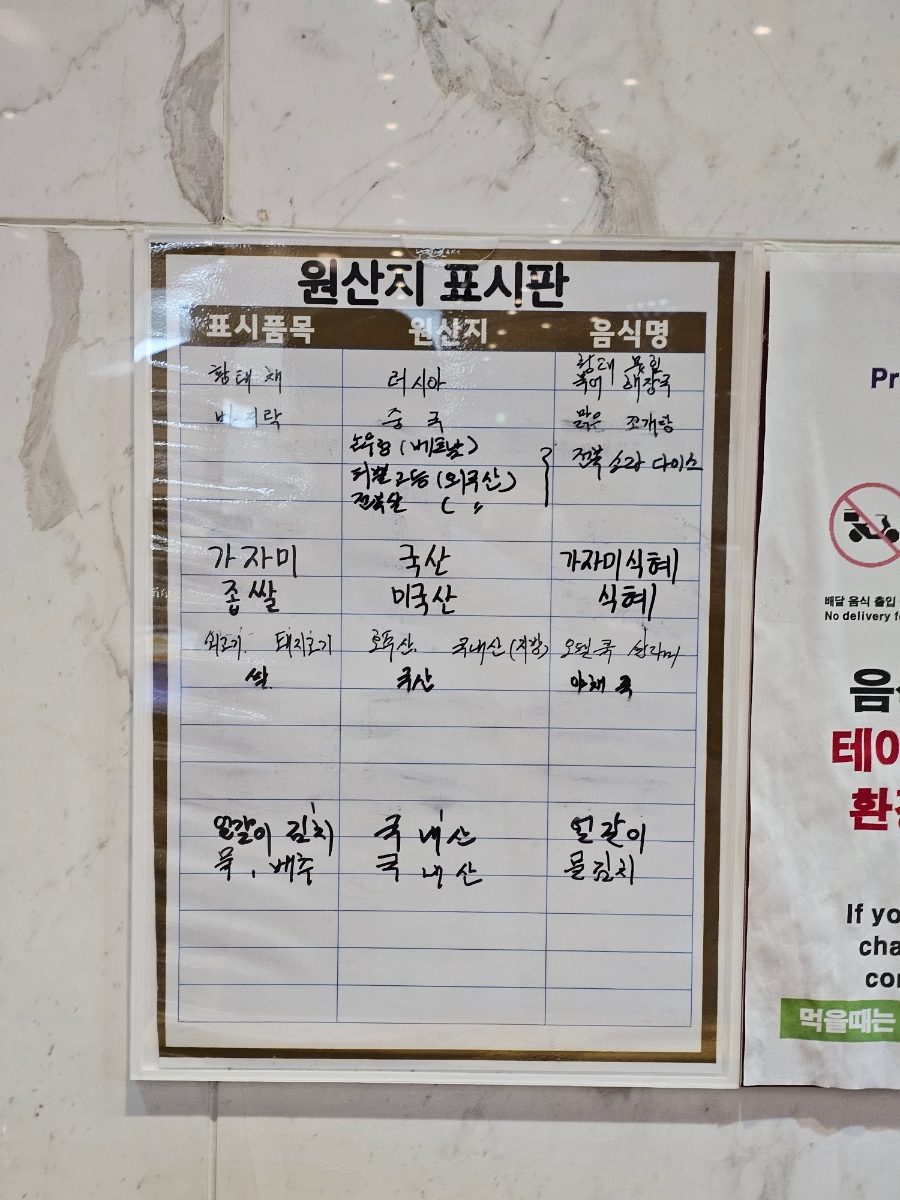 원산지 표시판
표시품목 원산지 음식명
황태채 러시아 황태
북어 해장국
바지락 중국 맑은 조개탕
(베트남)
(외국산) 전복 소라 다이스
전복살 ( 〃
가자미 국산 가자미식혜
좁쌀 미국산 식혜
쇠고기. 돼지고기 호주산. 국내산
쌀 국산 야채 죽
얼갈이 김치 국내산 얼갈이
무, 배추 국내산 물김치
Pr
배달 음식 출입
No delivery fo
음식
테이
환경
If yo
cha
con
먹을때는